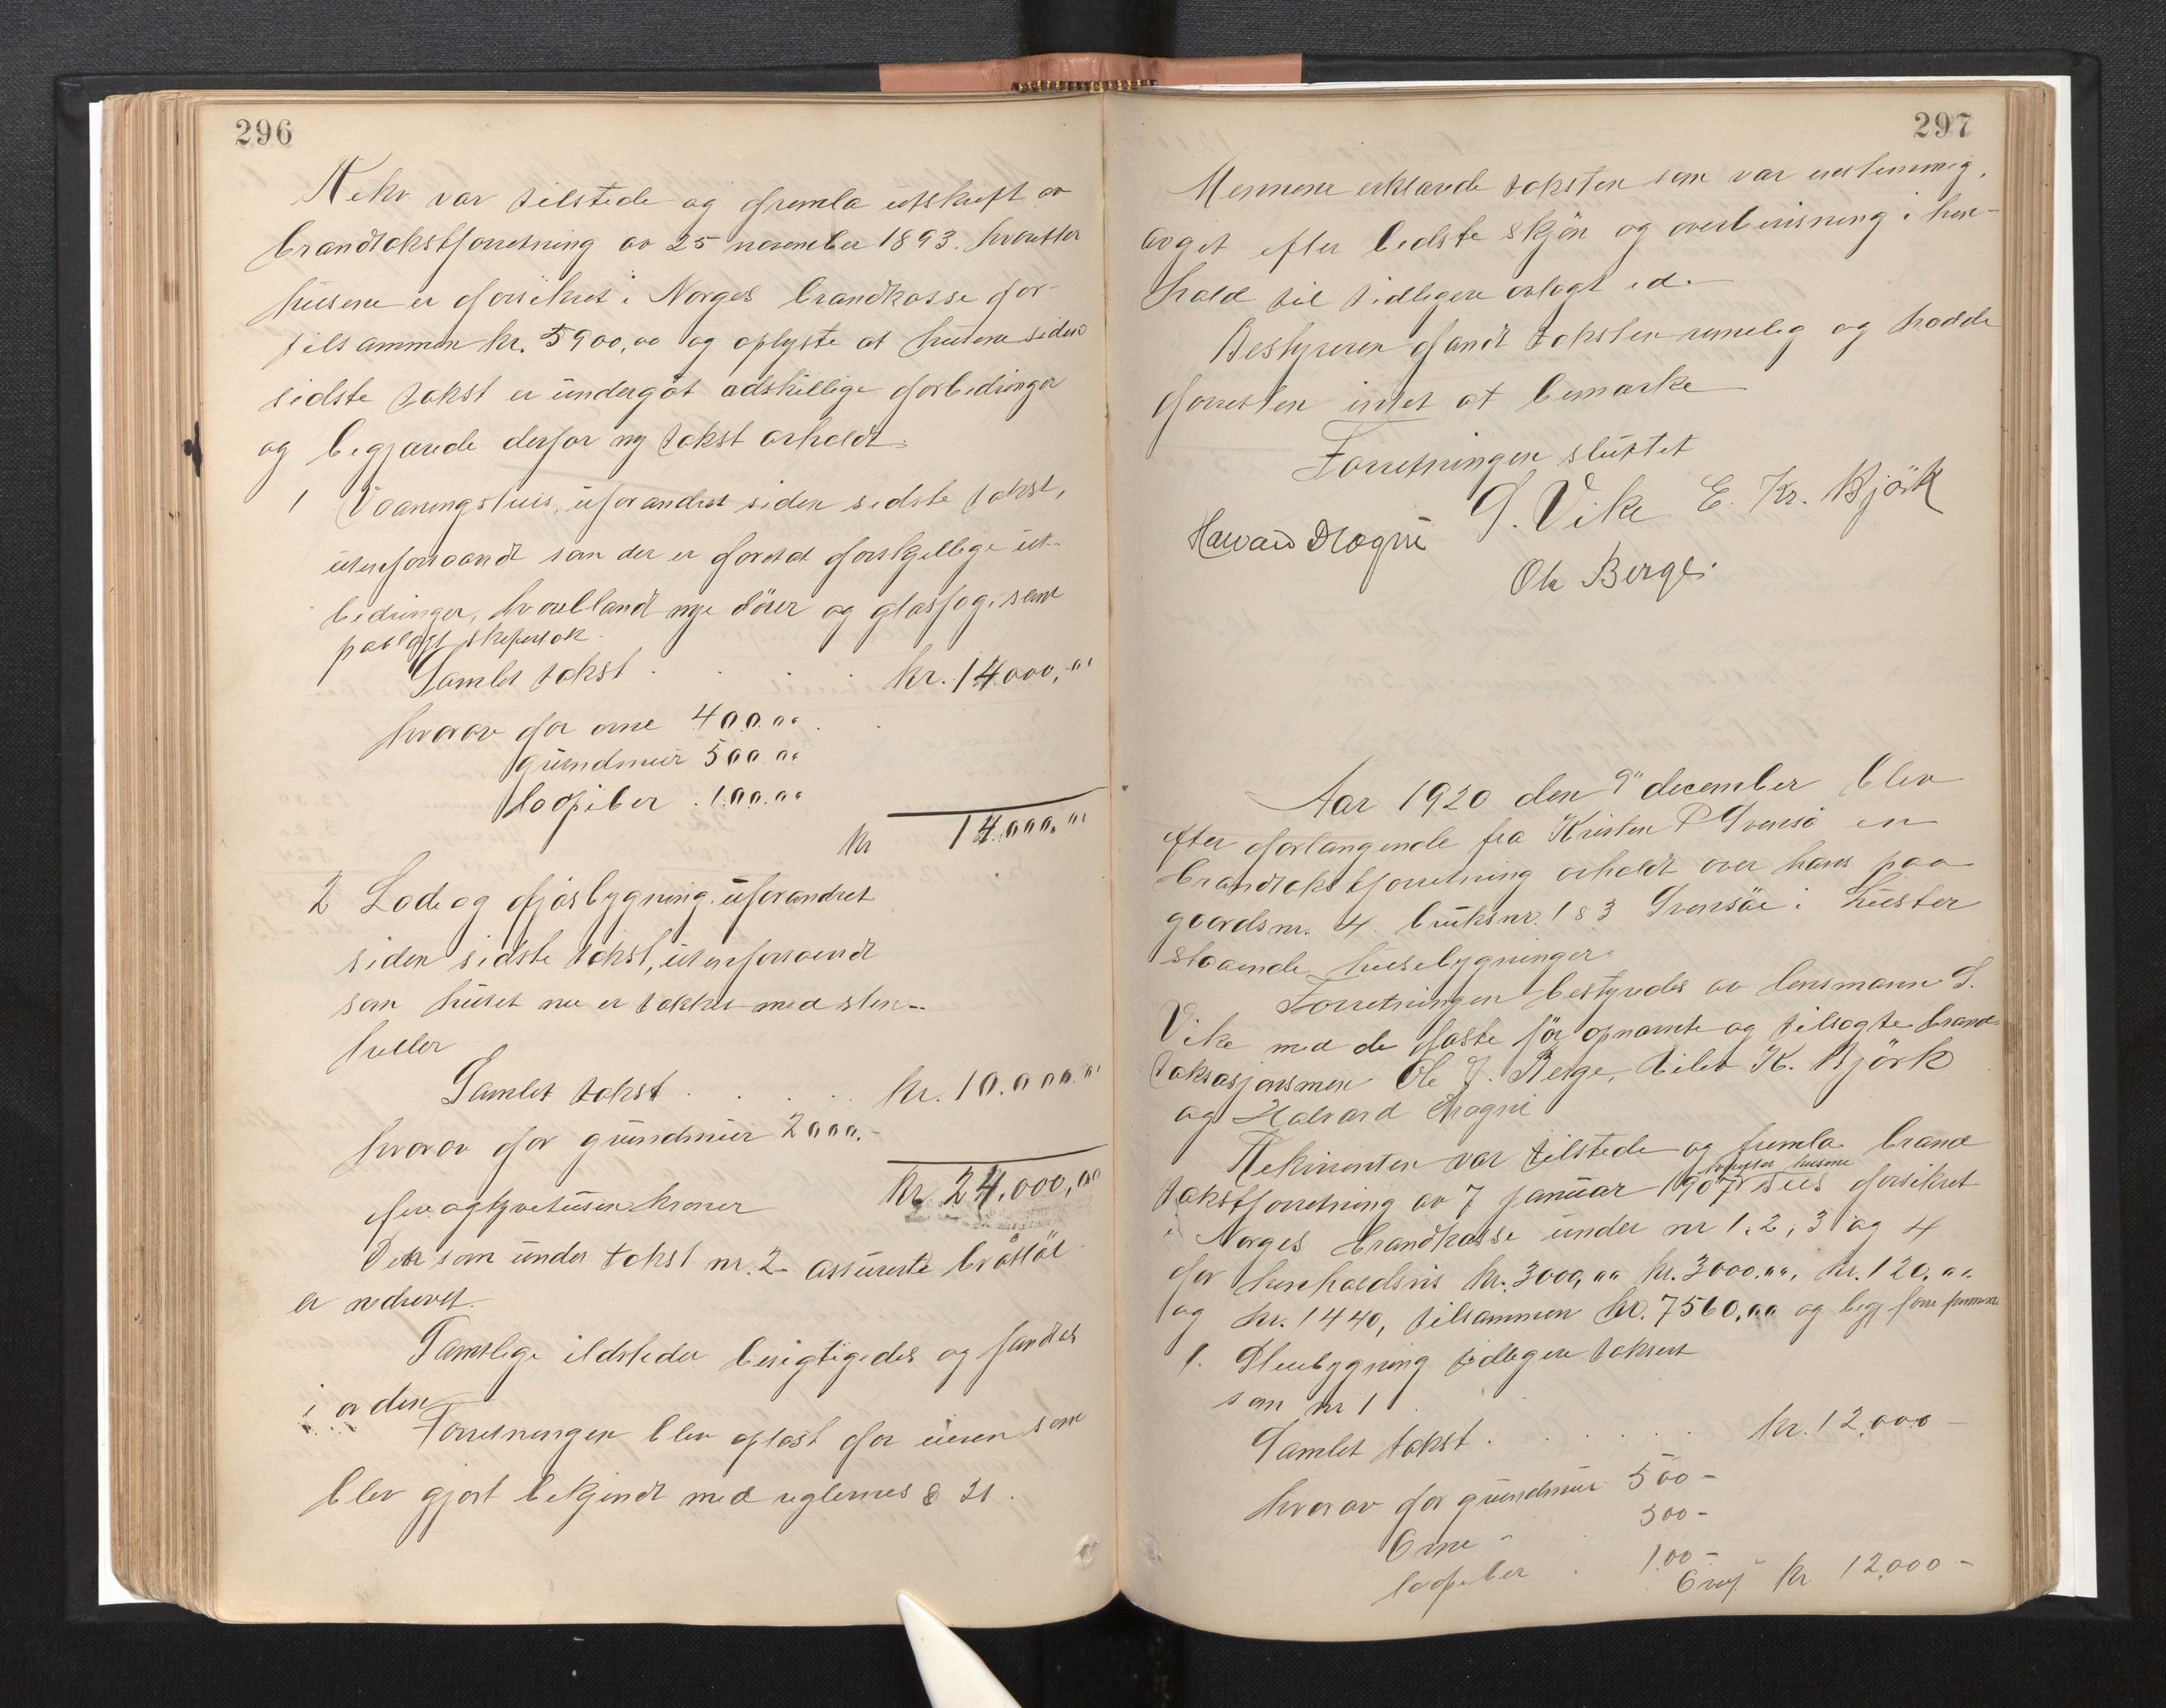 296
Rekv. var tilstede og fremla utskrift av
brandtakstforretning av 25 november 1893. hvorefter
husene er forsikret i Norges brandkasse for
tilsammen kr. 5900,00 og oplyste at husene siden
sidste takst er undergåt adskillige forbedringer
og begjærede derfor ny takst avholdt.
1 Vaaningshus, uforandret siden sidste takst,
utenforsaavidt som der er foretat forskjellige ut-
bedringer, hvoriblandt nye dörer og glasfog, samt
paalagt skifertak.
Samlet takst . . . . kr. 14000,00
hvorav for ovne 400.00
grundmur 500.00
lodpiber . 100.00
kr 14.000.00
2 Lade og fjøsbygning uforandret
siden sidste takst, utenforsavidt
som huset nu er takket med sten-
heller
Samlet takst . . . . kr. 10.000.00
hvorav for grundmur 2000.-
fireogtyvetusen kroner kr. 24.000,00
Den som under takst nr. 2 assurerte
er nedrevet.
Samtlige ildsteder besigtigedes og fandtes
i orden
Forretningen blev oplæst for eieren som
blev gjort bekjendt med reglernes § 21.
297
Mennene erklærede taksten som var enstemmig,
avget efter bedste skjön og overbevisning i hen-
hold til tidligere avlagt ed.
Bestyreren fandt taksten rimelig og hadde
forresten intet at bemærke
Forretningen sluttet
S. Vike E. Kr. Björk
Havard Mogni
Ole Berge.
Aar 1920 den 9" december blev
efter forlangende fra Kristen P Svensö en
brandtakstforretning avholdt over hans paa
gaardsnr. 4 bruksnr. 1 & 3 Svensöi i Luster
staaende husebygninger.
Forretningen bestyredes av lensmann S.
Vike med de faste för opnævnte og tilsagte brand-
taksasjonsmen Ole J. Berge, Eilev K. Björk
og Halvard Mogni
Rekvirenten var tilstede og fremla brand
takstforretning av 7 januar 1907 hvorefter husene sees forsikret
i Norges Brandkasse under nr 1, 2, 3 og 4
for henholdsvis kr. 3000,00 kr. 3000.00, kr. 120,00
og kr. 1440, tilsammen kr. 7560,00 og begj
1. Stuebygning tidligere taksert
som nr 1
Samlet takst . . . . . kr. 12,000 -
hvorav for grundmur 500 -
Ovne - 300 -
lodpiber . 100 -
Overf. kr 12,000 -